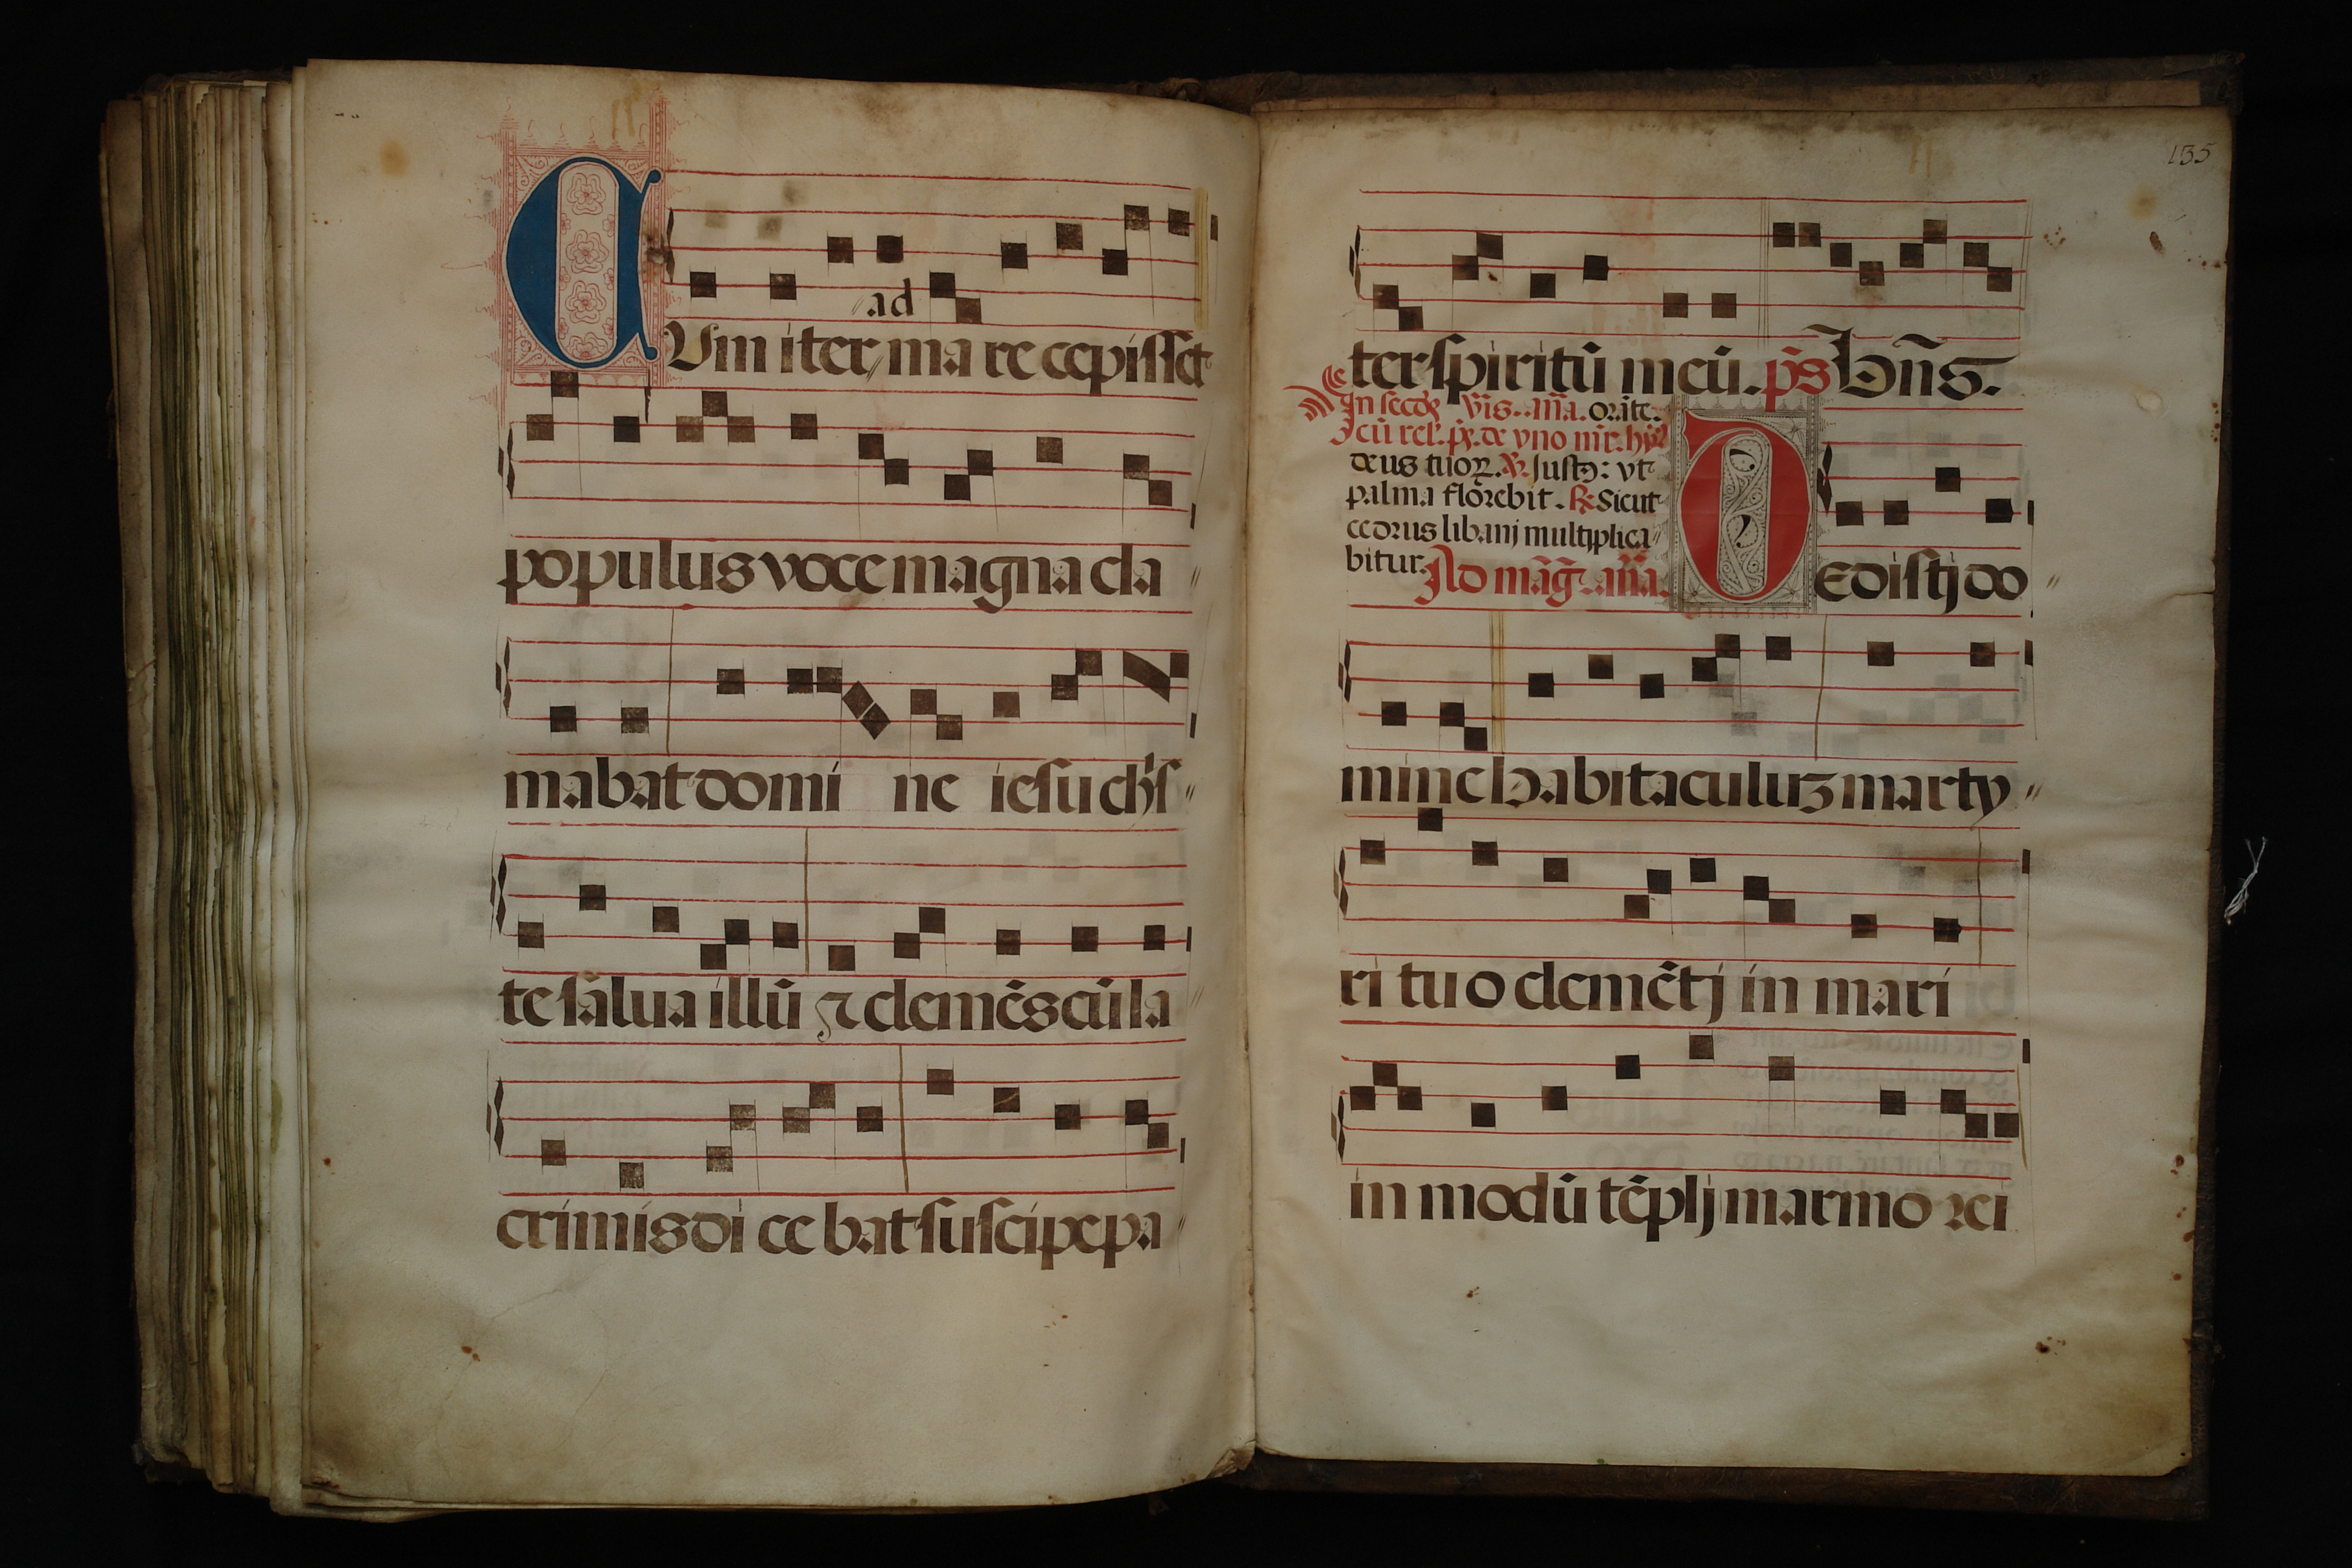 ad
CUm iter // ma re cepisset
populus voce magna cla //
mabat domi ne iesu chr̄s //
te salua illū ⁊ clemēs cū la //
crimis di ce bat suscipe pa //
135
ter spiritū meū. p̄s Bn̄s.
In secd̄ vr̄is. an̄a. orāte.
deus tuoꝝ. ℣. Justꝰ: vt
palma florebit. ℞. Sicut
cedrus libanj multiplica //
bitur. Ad mag̃. an̄a.
Dedistj do //
mine habitaculuꝫ marty //
ri tu o clemētj in mari
in modū tēplj marmo rei